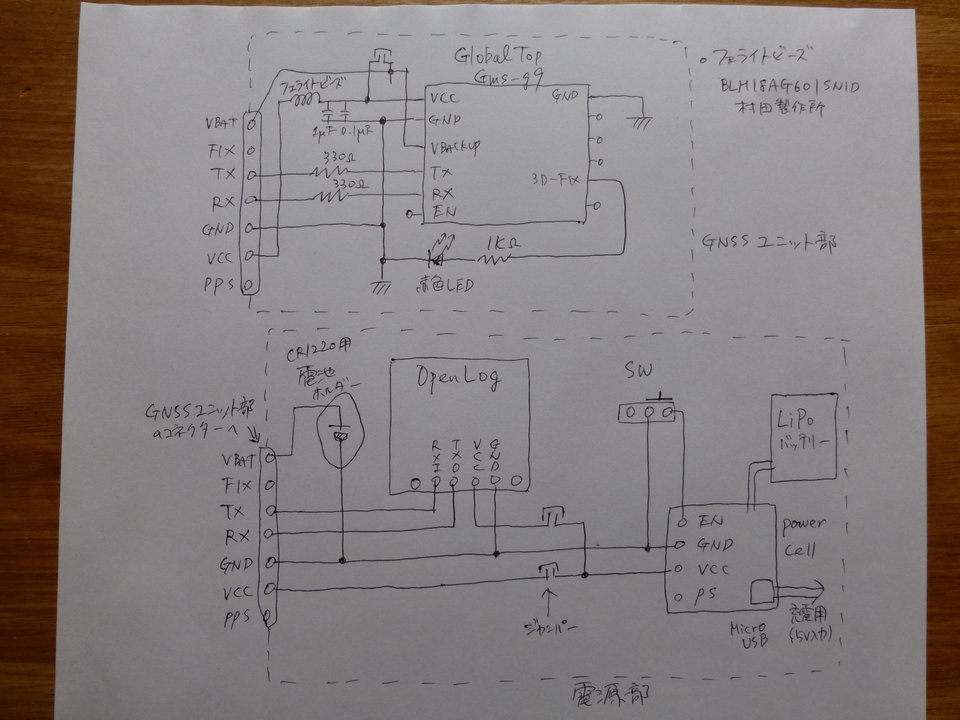 Global Top
Gms-g9
フェライトビーズ
VCC
GND
VBACKUP
TX
RX
EN
GND
3D-FIX
1μF 0.1μF
330Ω
330Ω
1KΩ
赤色LED
VBAT
FIX
TX
RX
GND
VCC
PPS
。フェライトビーズ
BLM18AG601SN1D
村田製作所
GNSSユニット部
CR1220用
電池
ホルダー
GNSSユニット部
のコネクターへ
VBAT
FIX
TX
RX
GND
VCC
PPS
OpenLog
RXI
TXO
VCC
GND
ジャンパー
SW
LiPo
バッテリー
EN
GND
VCC
PS
power
cell
Micro
USB
充電用
(5V入力)
電源部